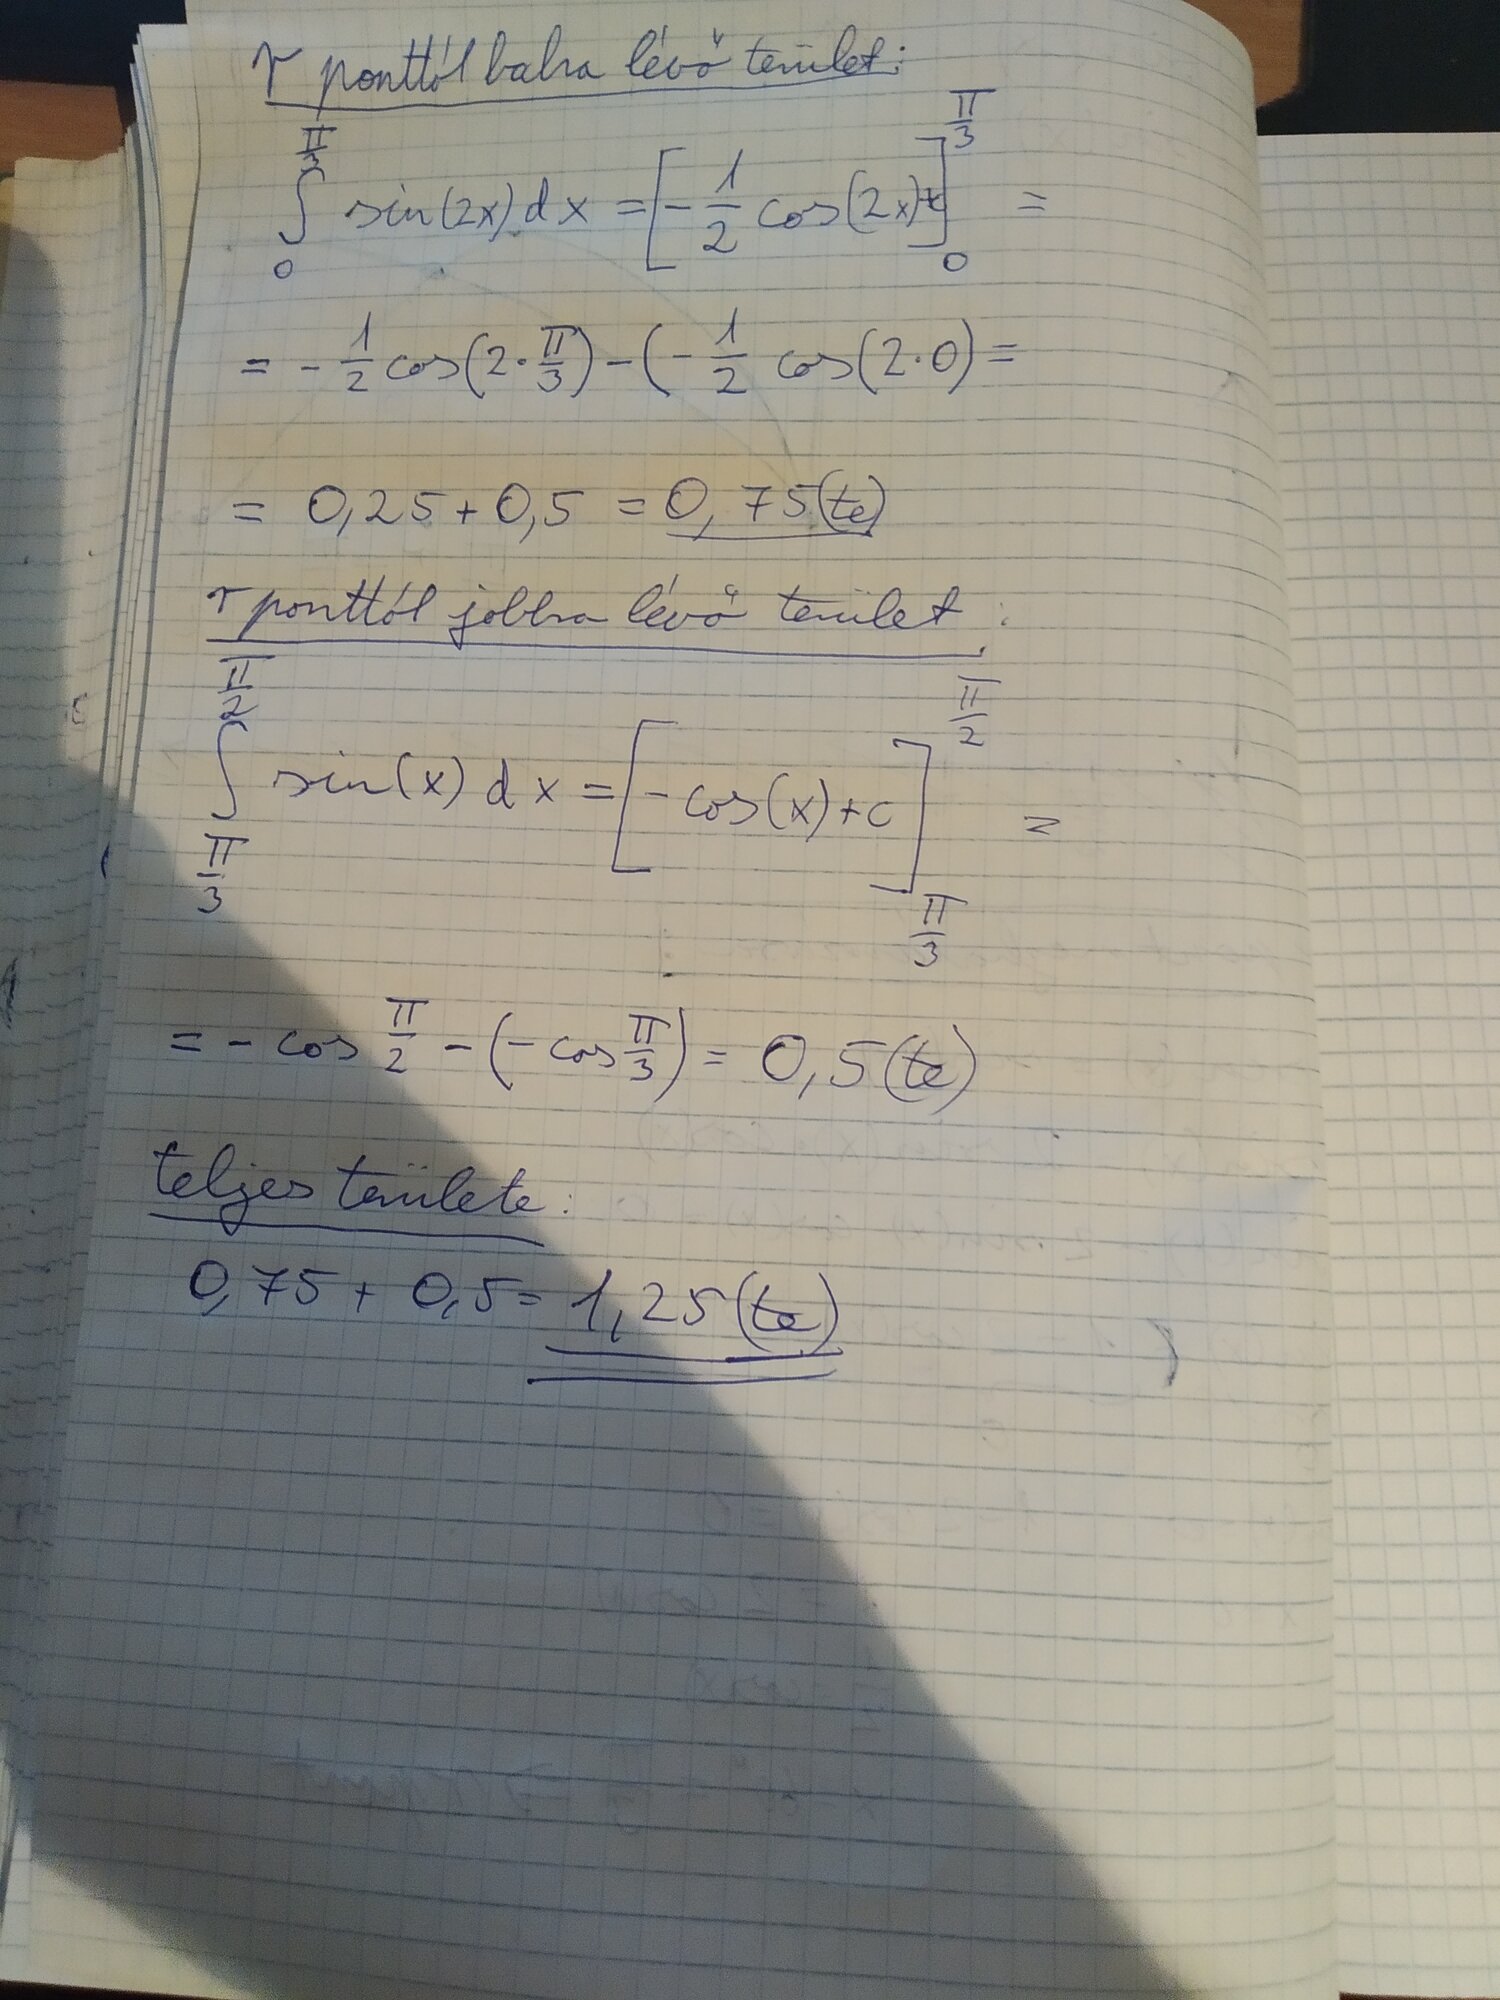 r ponttól balra lévő terület:
∫₀^(π/3) sin(2x) dx = [-1/2 cos(2x)+c]₀^(π/3) =
= -1/2 cos(2·π/3) - (-1/2 cos(2·0) =
= 0,25 + 0,5 = 0,75 (te)
r ponttól jobbra lévő terület:
∫_(π/3)^(π/2) sin(x) dx = [-cos(x)+c]_(π/3)^(π/2) =
= -cos π/2 - (-cos π/3) = 0,5 (te)
teljes területe:
0,75 + 0,5 = 1,25 (te)